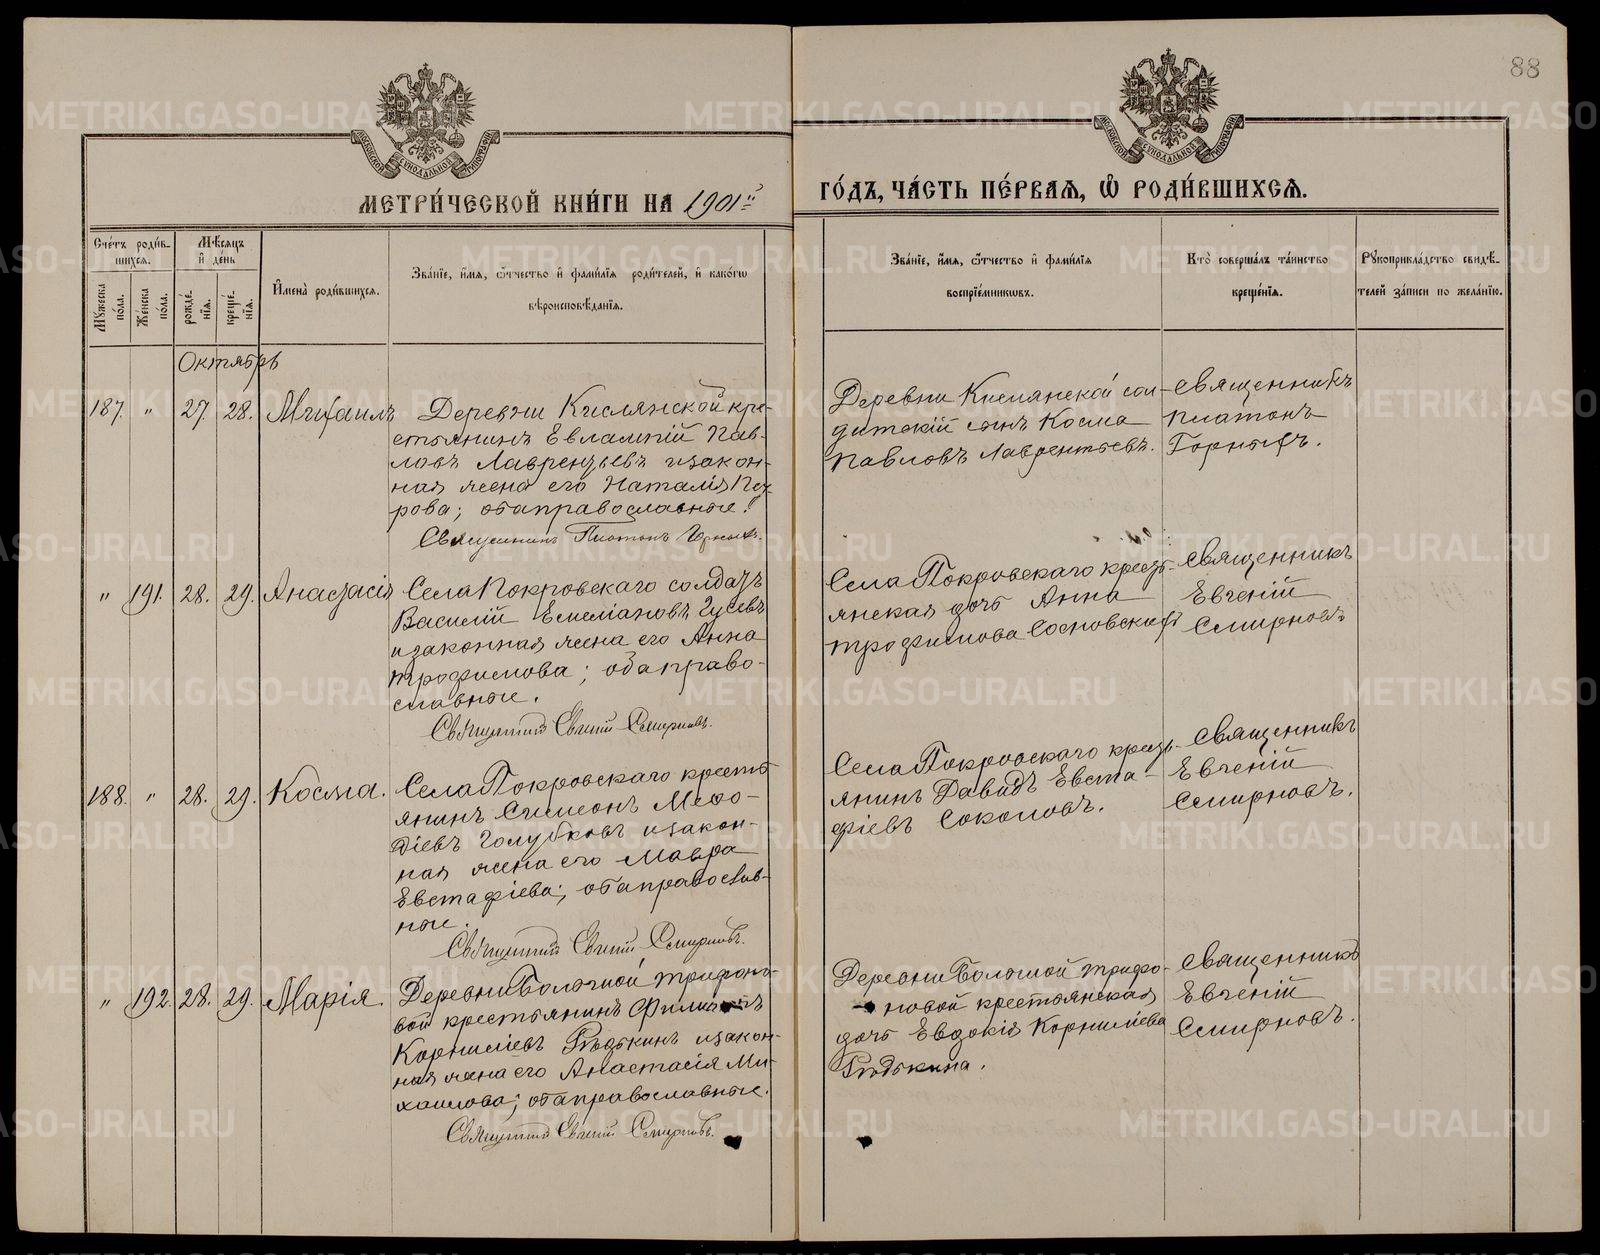 88
МЕТРИ́ЧЕСКОЙ КНИ́ГИ НА 1901й
ГО́ДЪ, ЧА́СТЬ ПЕ́РВАЯ, Ѡ҆ РОДИ́ВШИХСЯ.
Сче́тъ роди́в-
шихся.
Мꙋ́жеска по́ла.
Же́нска по́ла.
Мѣ́сяцъ
и҆ де́нь
рожде́-
нїя.
креще́-
нїя.
И҆мена̀ роди́вшихся.
Зва́нїе, и҆́мя, ѻ҆́тчество и҆ фами́лїя роди́телей, и҆ како́гѡ
вѣроисповѣ́данїя.
Зва́нїе, и҆́мя, ѻ҆́тчество и҆ фами́лїя
воспрїе́мниковъ.
Кто̀ соверша́лъ та́инство
креще́нїя.
Рꙋкоприкла́дство свидѣ́-
телей за́писи по жела́нїю.
Октябрь
187. " 27. 28. Михаилъ
Деревни Кислянской кре-
стьянинъ Евлампій Пав-
ловъ Лаврентьевъ и закон-
ная жена его Наталія Пет-
рова; оба православные.
Священникъ Платонъ Горныхъ.
Деревни Кислянской сол-
датскій сынъ Косма
Павловъ Лаврентьевъ.
Священникъ
Платонъ
Горныхъ.
" 191. 28. 29. Анастасія
Села Покровскаго солдатъ
Василій Емеліановъ Гусевъ
и законная жена его Анна
Трофимова; оба право-
славные.
Священникъ Евгеній Смирновъ.
Села Покровскаго кресть-
янская дочь Анна
Трофимова Сосновскихъ
Священникъ
Евгеній
Смирновъ.
188. " 28. 29. Косма.
Села Покровскаго кресть
янинъ Симеонъ Меѳо-
діевъ Голубковъ и закон-
ная жена его Мавра
Евстафіева; оба православ-
ные.
Священникъ Евгеній Смирновъ.
Села Покровскаго кресть-
янинъ Давидъ Евста-
фіевъ Соколовъ.
Священникъ
Евгеній
Смирновъ.
" 192. 28. 29. Марія.
Деревни Большой Трифоно-
вой крестьянинъ
Корниліевъ Рѣдькинъ и закон-
ная жена его Анастасія Ми-
хаилова; оба православные.
Священникъ Евгеній Смирновъ.
Деревни Большой Трифо-
новой крестьянская
дочь Евдокія Корниліева
Рѣдькина.
Священникъ
Евгеній
Смирновъ.
METRIKI.GASO-URAL.RU